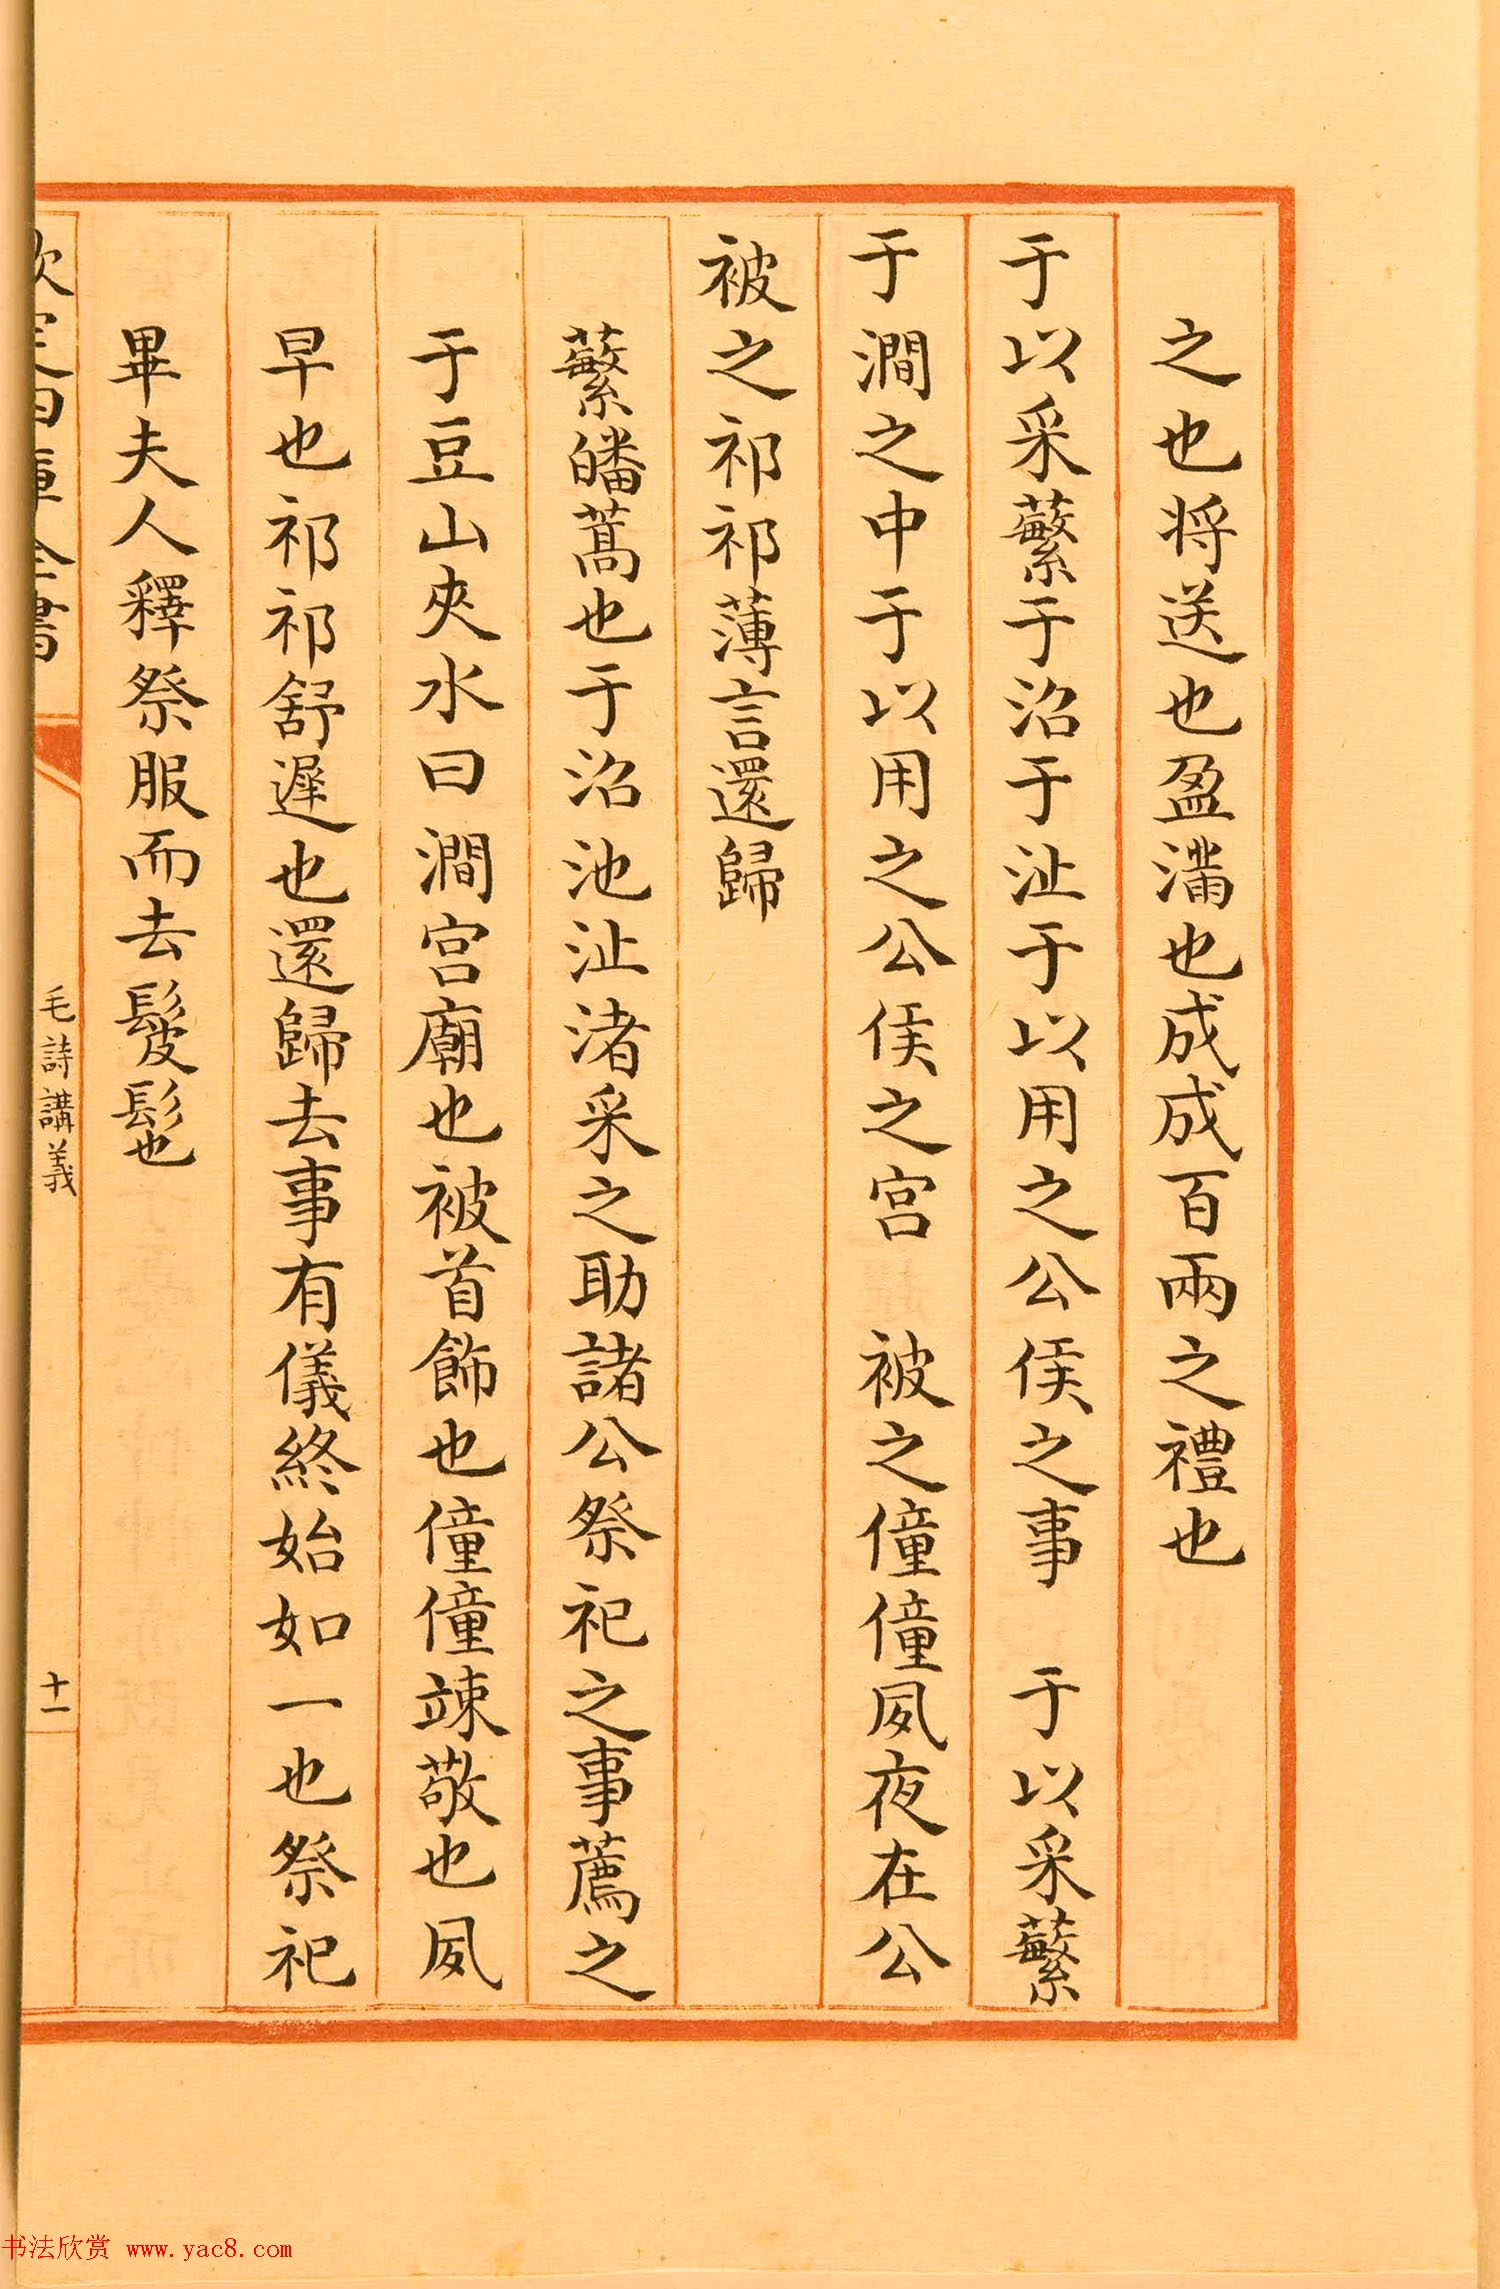 之也將送也盈滿也成成百兩之禮也
于以采蘩于沼于沚于以用之公侯之事　于以采蘩
于澗之中于以用之公侯之宫　被之僮僮夙夜在公
被之祁祁薄言還歸
蘩皤蒿也于沼池沚渚采之助諸公祭祀之事薦之
于豆山夾水曰澗宫廟也被首飾也僮僮竦敬也夙
早也祁祁舒遲也還歸去事有儀終始如一也祭祀
畢夫人釋祭服而去髲髢也
欽定四庫全書
毛詩講義
十一
书法欣赏 www.yac8.com